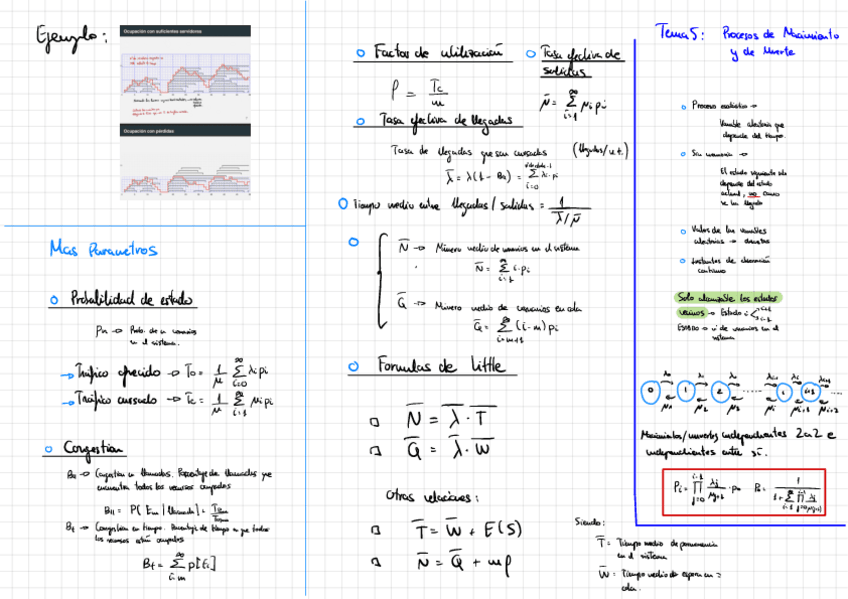 Ejemplo:
Ocupación con suficientes servidores
Ocupación con pérdidas
Mas Parametros
Probabilidad de estado
Pn → Prob. de n usuarios
en el sistema.
→ Tráfico ofrecido → To = 1/μ ∑ λi pi
→ Tráfico cursado → Tc = 1/μ ∑ μi pi
Congestion
Bll → Congestion en llamadas. Porcentaje de llamadas que
encuentra todos los recursos ocupados
Bll = P( Em | llamada) =
Bt → Congestion en tiempo. Porcentaje de tiempo en que todos
los recursos están ocupados
Bt = ∑ p[Ei]
i=m
Factor de utilización
ρ = Tc/m
Tasa efectiva de
salidas
μ̄ = ∑ μi pi
Tasa efectiva de llegadas
Tasa de llegadas que son cursadas (llegadas/u.t.)
λ̄ = λ(1 - Bll) = ∑ λi · pi
Tiempo medio entre llegadas / salidas = 1/(λ̄/μ̄)
N̄ → Número medio de usuarios en el sistema
N̄ = ∑ i·pi
Q̄ → Número medio de usuarios en cola
Q̄ = ∑ (i-m) pi
i=m+1
Formulas de Little
N̄ = λ̄ · T̄
Q̄ = λ̄ · W̄
Otras relaciones:
T̄ = W̄ + E(S)
N̄ = Q̄ + mρ
Siendo:
T̄ = Tiempo medio de permanencia
en el sistema
W̄ = Tiempo medio de espera en
cola.
Tema 5: Procesos de Nacimiento
y de Muerte
Proceso estocástico →
Variable aleatoria que
depende del tiempo.
Sin memoria →
El estado siguiente solo
depende del estado
actual, no como
se ha llegado
Valores de las variables
aleatorias → discretas
Instantes de observación
continuo
Solo alcanzable los estados
vecinos → Estado i < i+1 i-1
Estado → nº de usuarios en el
sistema
0 1 2 ...... i i+1 ....
Nacimientos/muertes independientes 2 a 2 e
independientes entre sí.
Pi = ∏ λj/μj+1 · p0 P0 = 1/(1+∑∏ λj/μj+1)